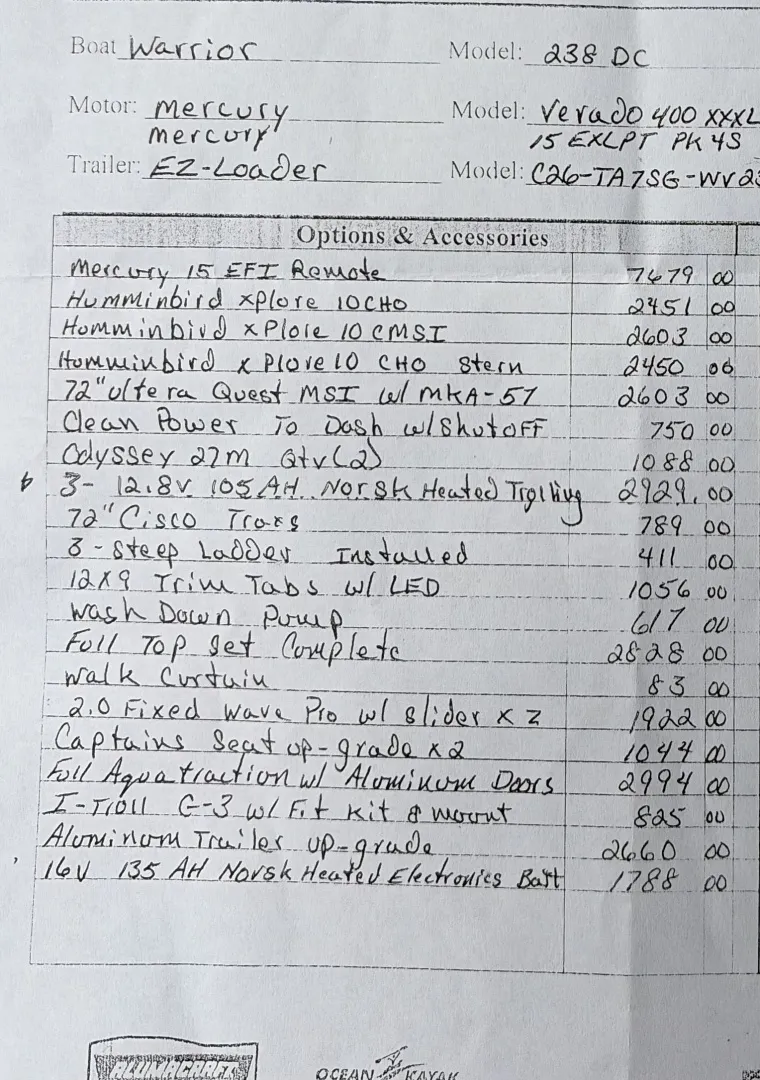 Boat Warrior Model: 238 DC
Motor: Mercury Model: Verado 400 XXXL
Mercury 15 EXLPT PK 4S
Trailer: EZ-Loader Model: C26-TA7SG-WV23
Options & Accessories
Mercury 15 EFI Remote 7679 00
Humminbird Xplore 10CHO 2451 00
Humminbird Xplore 10 CMSI 2603 00
Humminbird Xplore 10 CHO Stern 2450 00
72" Ultera Quest MSI w/ MKA-57 2603 00
Clean Power To Dash w/Shutoff 750 00
Odyssey 27m Qty (2) 1088 00
3- 12.8V 105 AH Norsk Heated Trolling 2929.00
72" Cisco Tracs 789 00
3-Steep Ladder Installed 411 00
12x9 Trim Tabs w/ LED 1056 00
Wash Down Pump 617 00
Full Top Set Complete 2828 00
Walk Curtain 83 00
2.0 Fixed Wave Pro w/ Slider x 2 1922 00
Captains Seat up-grade x2 1044 00
Full Aquatraction w/ Aluminum Doors 2994 00
I-Troll G-3 w/ Fit Kit & Mount 825 00
Aluminum Trailer up-grade 2660 00
16V 135 AH Norsk Heated Electronics Batt 1788 00
ALUMACRAFT OCEAN KAYAK